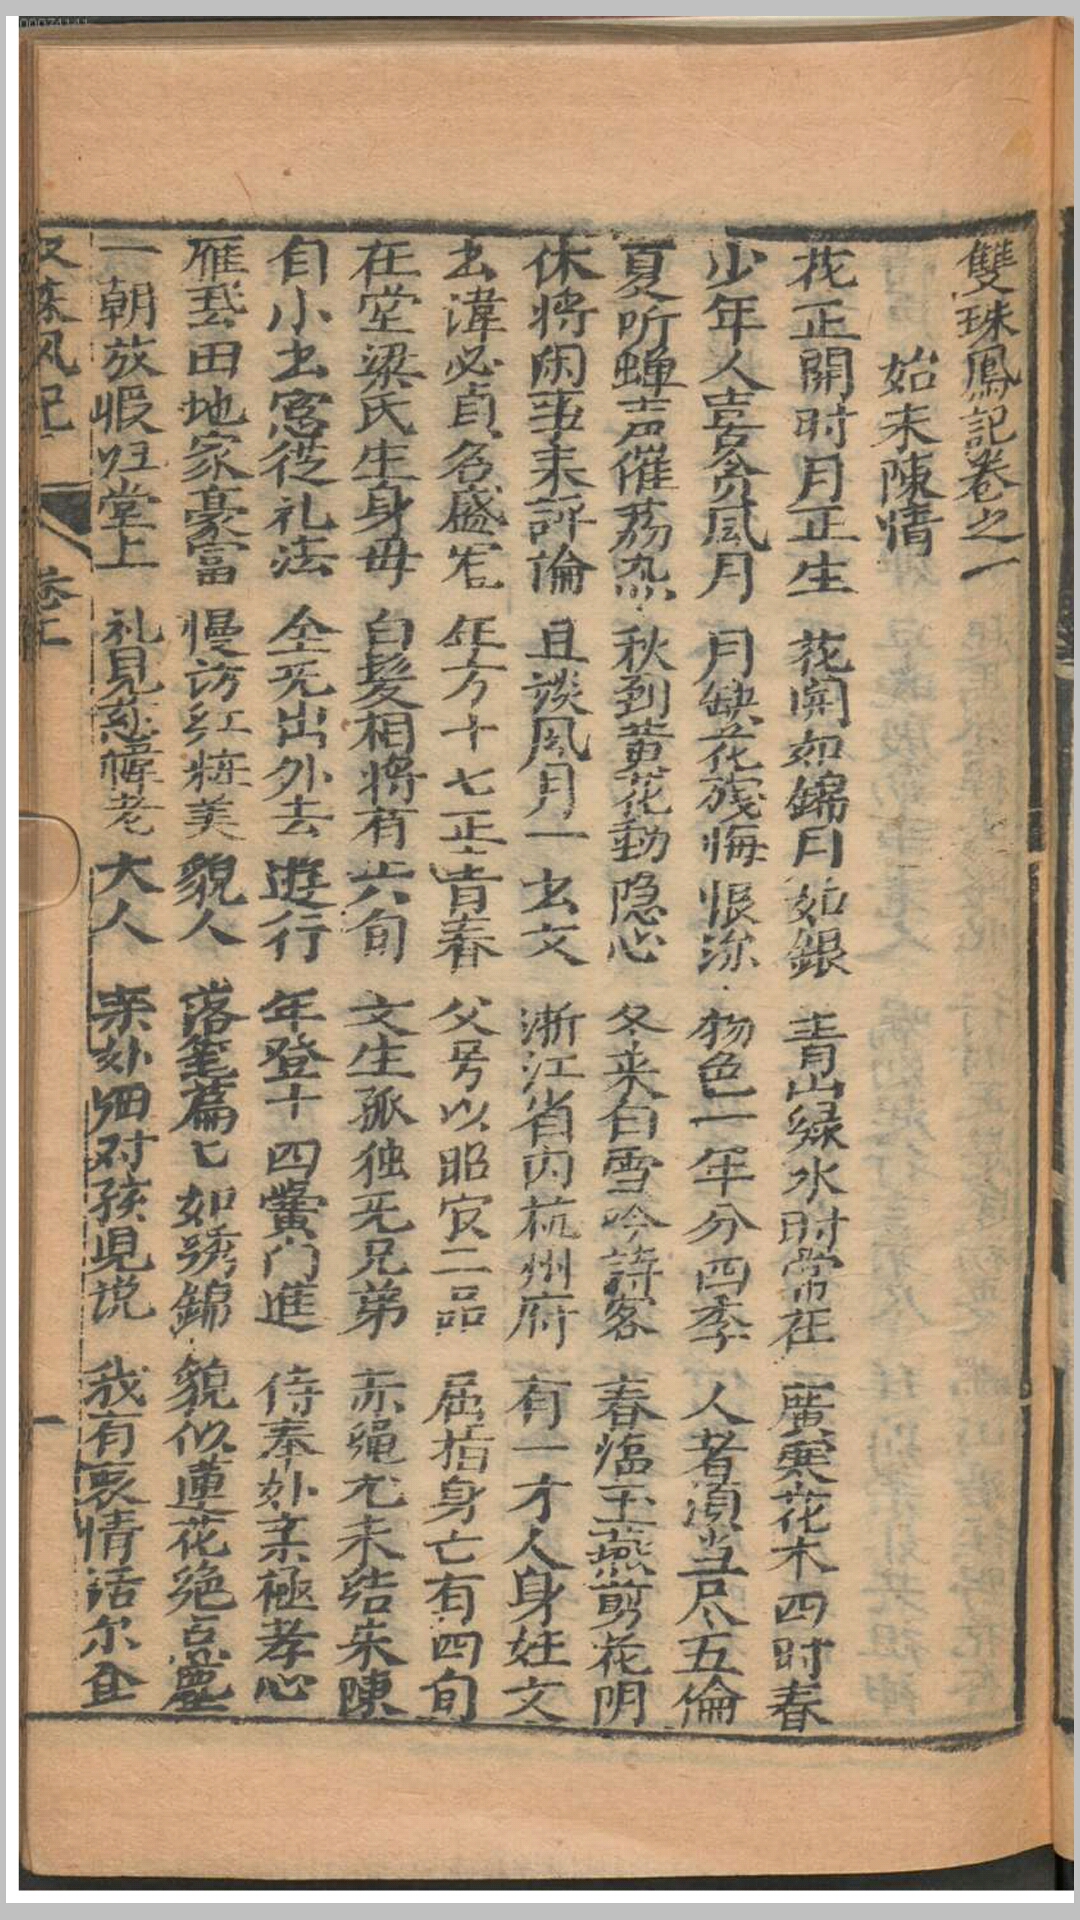 雙珠鳳記卷之一
始末陳情
花正開时月正生 花開如錦月如銀 青山綠水时常在 廣寒花木四时春
少年人喜貪風月 月缺花殘悔恨深 物色一年分四季 人者須当尽五倫
夏听蝉声催荔 秋到黄花動隐心 冬来白雪吟詩客 春臨玉燕剪花明
休將闲事来評論 且談風月一玄文 浙江省内杭州府 有一才人身姓文
玄諱必貞名盛 年方十七正青春 父号以昭官二品 屈指身亡有四旬
在堂梁氏生身母 白髮相將有六旬 文生孤独无兄弟 赤绳尤未结朱陳
自小玄窓從礼法 全无出外去遊行 年登十四黌门進 侍奉北亲極孝心
雁田地家豪富 慢访红粧美貌人 落笔篇匕如琇錦 貌似蓮花绝点塵
一朝放假归堂上 礼見慈幃老大人 亲北细对孩児说 我有衷情话尔金
双珠凤记 卷一 一